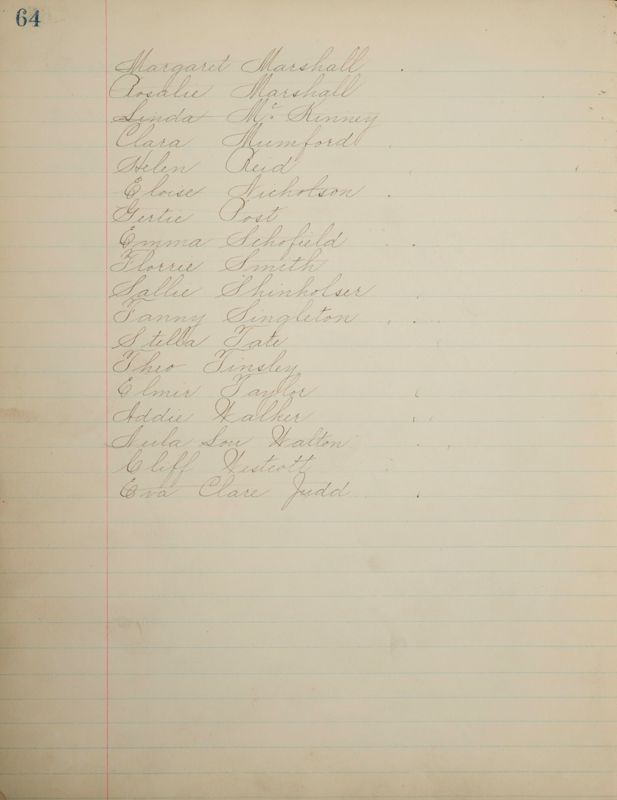 64
Margaret Marshall
Rosalie Marshall
Linda Mc Kinney
Clara Mumford
Helen Reid
Eloise Nicholson
Gertie Post
Emma Schofield
Florrie Smith
Sallie Shinholser
Fanny Singleton
Stella Tate
Theo Tinsley
Elmir Taylor
Addie Walker
Lou Walton
Cliff Westcott
Eva Clare Judd